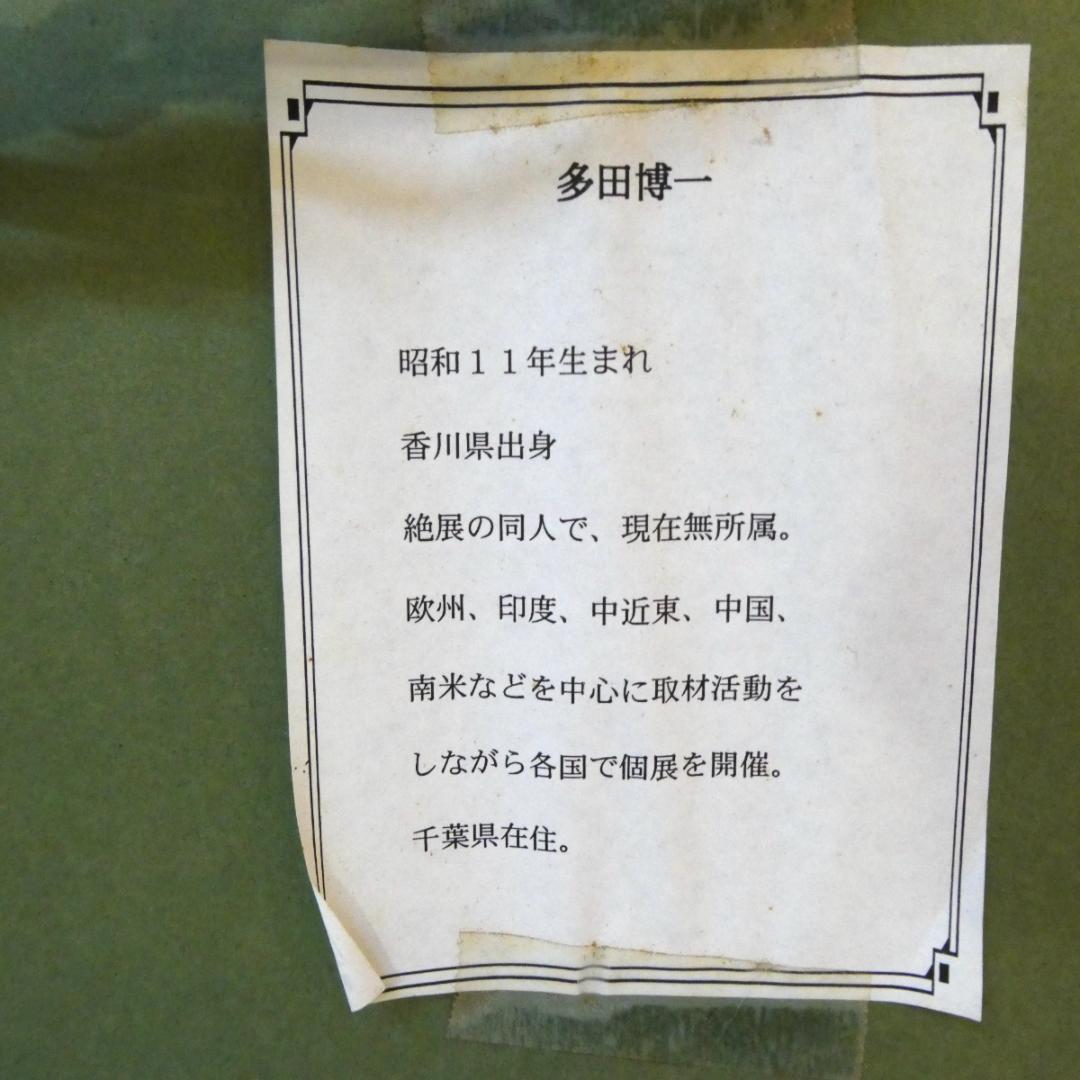 多田博一
昭和１１年生まれ
香川県出身
絶展の同人で、現在無所属。
欧州、印度、中近東、中国、
南米などを中心に取材活動を
しながら各国で個展を開催。
千葉県在住。